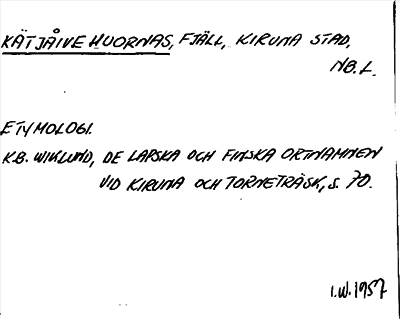 KÄTJÅIVE HUORNAS, FJÄLL, KIRUNA STAD,
NB.L.
ETYMOLOGI.
K.B. WIKLUND, DE LAPSKA OCH FINSKA ORTNAMNEN
VID KIRUNA OCH TORNETRÄSK, S. 70.
I.W. 1957